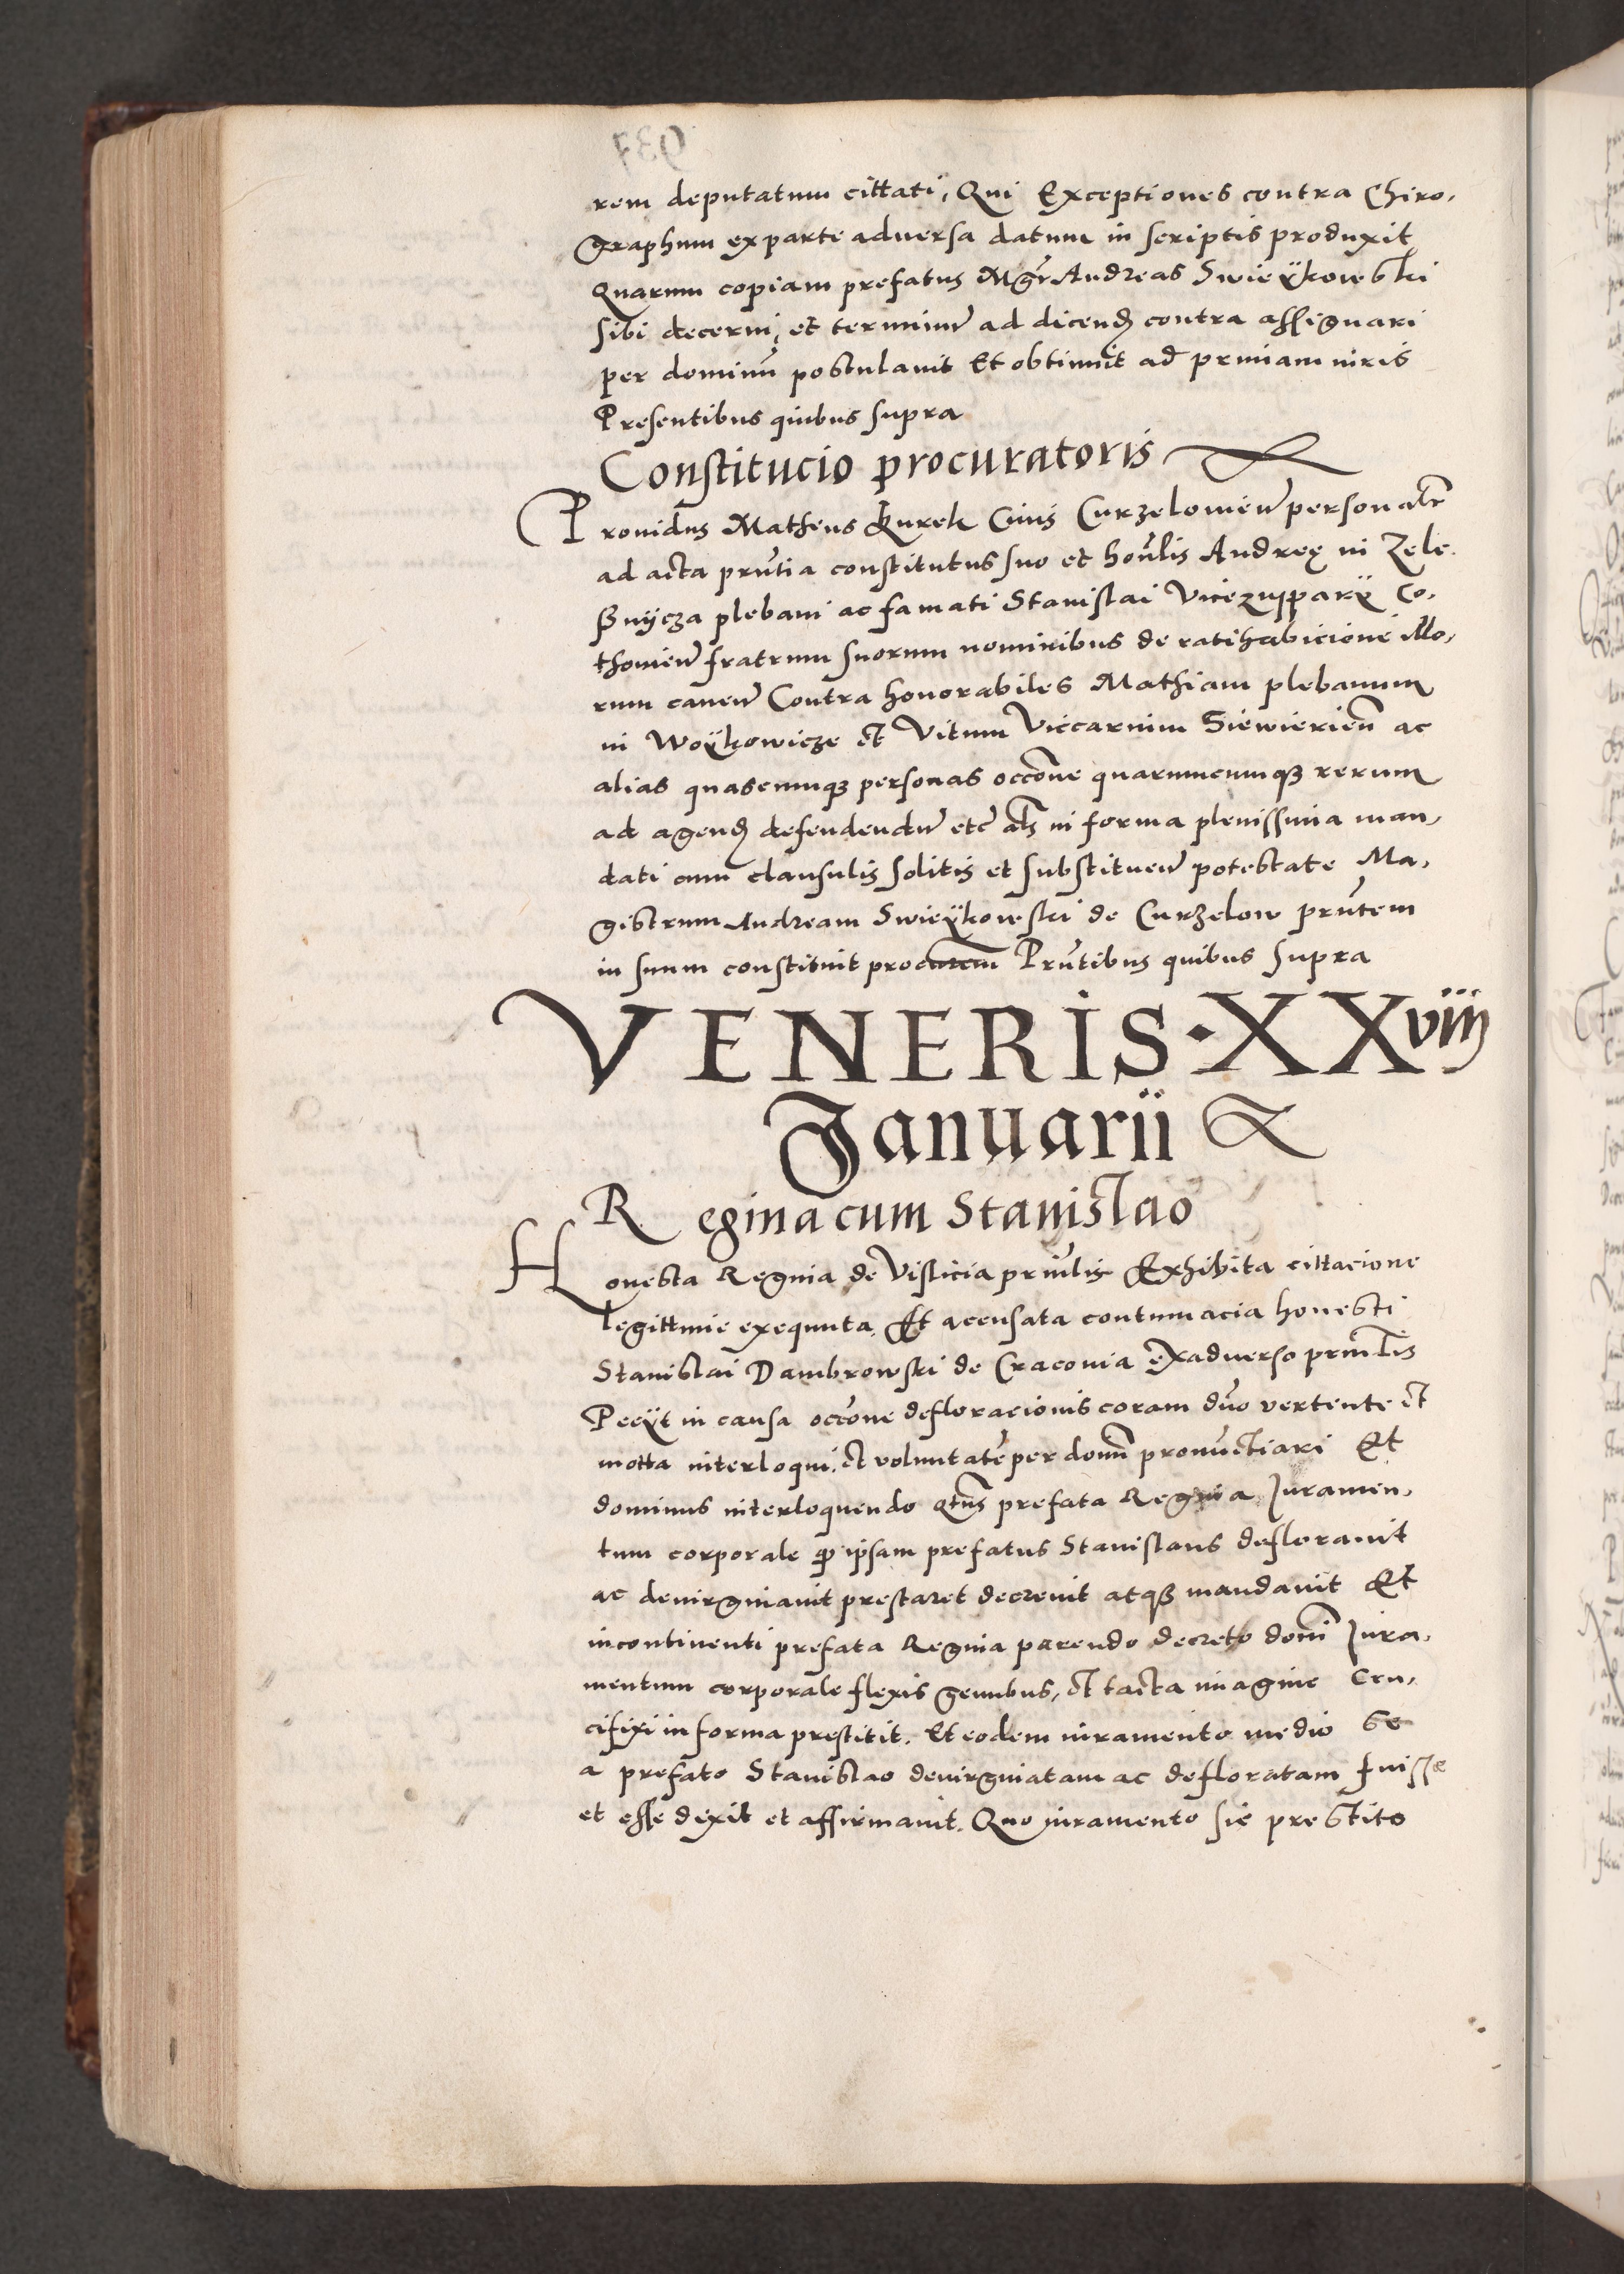 rem deputatum cittati, Qui Exceptiones contra Chiro,
graphum ex parte adversa datum in scriptis produxit
Quarum copiam prefatus Mgr Andreas Swieÿkowski
sibi decerni, et terminu ad dicend contra assignari
per dominu postulavit Et obtinuit ad primam iuris
Presentibus quibus supra
Constitucio procuratoris
Providus Matheus Kurek Civis Curzelowien personalr
ad acta prntia constitutus suo et honlis Andreę in Zele
snÿcza plebani ac famati Stanislai Vicezupparÿ Co,
thovien fratrum suorum nominibus de ratihabicione illo,
rum caven Contra honorabiles Mathiam plebanum
in Woÿkowicze et Vitum Viccarium Siewierien ac
alias quascumq personas occone quarumcumq rerum
ad agend defendendu etc als in forma plenissima man,
dati cum clausulis solitis et substituen potestate Ma,
gistrum Andream Swieÿkowski de Curzelow prntem
in suum constituit procurem Prntibus quibus supra
VENERIS · XXviii
Januarii
Regina cum Stanislao
Honesta Regina de Vislicia prinlis Exhibita cittacione
legittime exequuta, Et accusata contumacia honesti
Stanislai Dambrowski de Cracovia exadverso prinlis
Peciÿt in causa occone defloracionis coram dno vertente et
motta interloqui, et voluntate per domn pronunctiari Et
dominus interloquendo qtns prefata Regina Juramen,
tum corporale q ipsam prefatus Stanislaus defloravit
ac devirginavit prestaret decrevit atq mandavit Et
incontinenti prefata Regina parendo decreto domi Jura,
mentum corporale flexis genubus, et tacta imagine Cru,
cifixi in forma prestitit. Et eodem iuramento medio se
a prefato Stanislao devirginatam ac defloratam fuisse
et esse dixit et affirmavit. Quo iuramento sic prestito